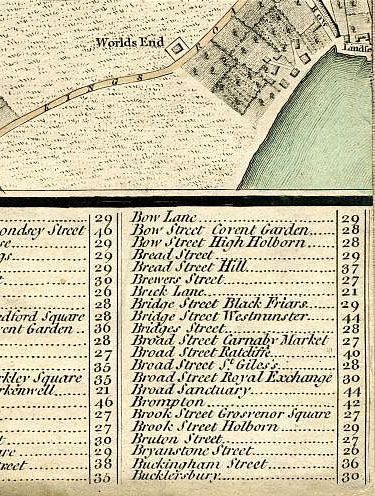 Worlds End
KINGS RO
Lands
29
ondsey Street 46
se 29
gs 29
29
t 30
26
28
edford Square 28
vent Garden 36
28
27
35
rkley Square 35
rkenwell 21
46
27
t 30
are 29
treet 38
35
Bow Lane 29
Bow Street Covent Garden 28
Bow Street High Holborn 28
Bread Street 29
Bread Street Hill 37
Brewers Street 27
Brick Lane 21
Bridge Street Black Friars 29
Bridge Street Westminster 44
Bridges Street 28
Broad Street Carnaby Market 27
Broad Street Ratcliffe 40
Broad Street St. Giles's 28
Broad Street Royal Exchange 30
Broad Sanctuary 44
Brompton 42
Brook Street Grosvenor Square 27
Brook Street Holborn 29
Bruton Street 27
Bryanstone Street 26
Buckingham Street 36
Bucklersbury 30